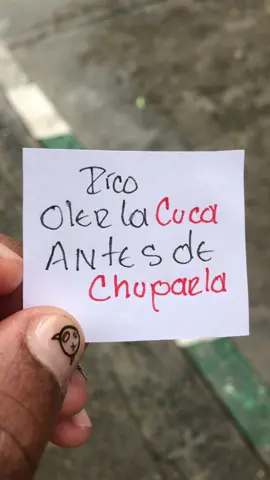 Rico
Oler la Cuca
Antes de
Chuparla